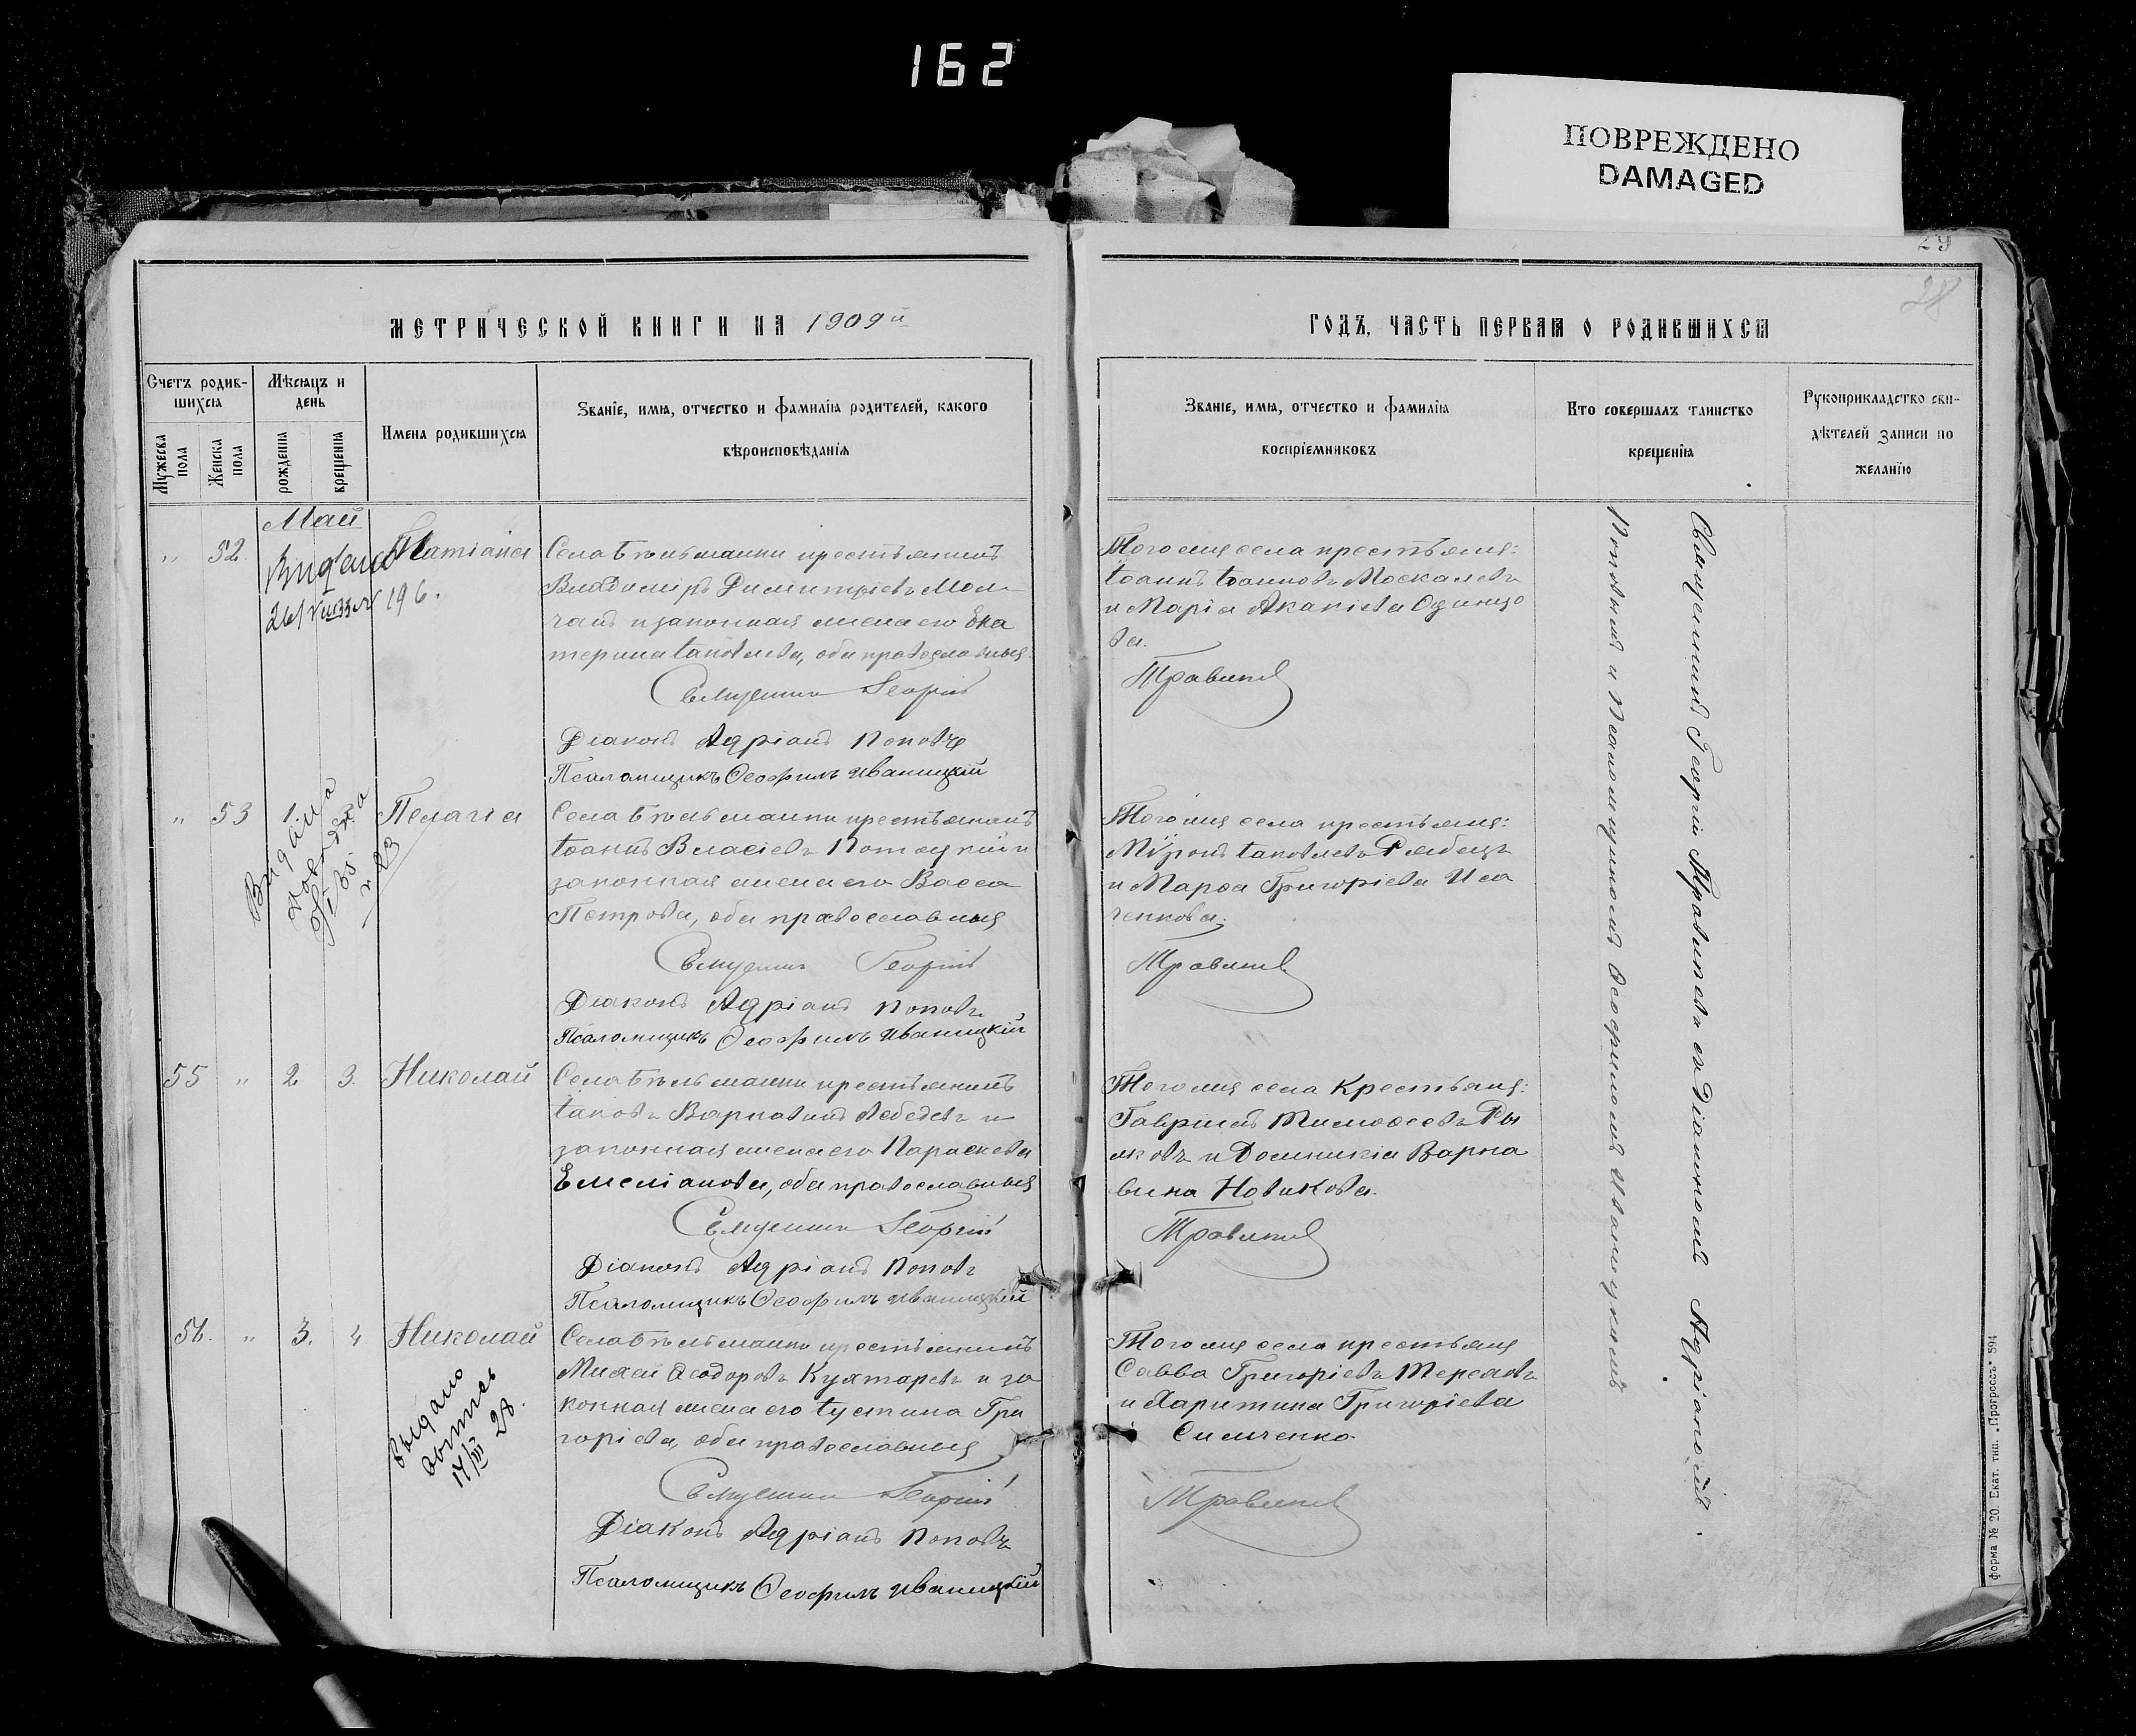 162
ПОВРЕЖДЕНО
DAMAGED
29
28
МЕТРИЧЕСКОЙ КНИГИ НА 1909й
ГОДЪ, ЧАСТЬ ПЕРВАЯ О РОДИВШИХСЯ
Счетъ родив-
шихся
Мужеска пола
Женска пола
Мѣсяцъ и день
рожденія
крещенія
Имена родившихся
Званіе, имя, отчество и фамилія родителей, какого
вѣроисповѣданія
Званіе, имя, отчество и фамилія
воспріемниковъ
Кто совершалъ таинство
крещенія
Рукоприкладство сви-
дѣтелей записи по
желанію
Май
„ 52 Татіана
Видано
196.
Села Бѣльманки крестьянинъ
Владиміръ Димитріевъ Мол-
чанъ и законная жена его Ека
терина Іаковлева, оба православныя
Священникъ Георгій
Діаконъ Адріанъ Поповъ
Псаломщикъ Ѳеофилъ Иваницкій
Того же села крестьяне:
Іоаннъ Іоанновъ Москалевъ
и Марія Акакіева Одинцо
ва.
Травлевъ
„ 53 1. Пелагія
Видана
довідка
№ 23
Села Бѣльманки крестьянинъ
Іоаннъ Власіевъ Потоцкій и
законная жена его Васса
Петрова, оба православныя
Священникъ Георгій
Діаконъ Адріанъ Поповъ
Псаломщикъ Ѳеофилъ Иваницкій
Того же села крестьяне:
Мѵронъ Іаковлевъ Рябецъ
и Марѳа Григоріева Иса
ченкова.
Травлевъ
55 „ 2 3. Николай
Села Бѣльманки крестьянинъ
Іаковъ Варнавинъ Лебедевъ и
законная жена его Параскева
Емеліанова, оба православныя
Священникъ Георгій
Діаконъ Адріанъ Поповъ
Псаломщикъ Ѳеофилъ Иваницкій
Того же села Крестьяне:
Гавріилъ Тимоѳеевъ Ры
жковъ и Домникія Варна
вина Новикова.
Травлевъ
56. „ 3. 4 Николай
Выдано
выпись
17/III 28.
Села Бѣльманки крестьянинъ
Михаи Ѳеодоровъ Кухтаревъ и за
конная жена его Іустина Гри
горіева, оба православныя
Священникъ Георгій
Діаконъ Адріанъ Поповъ
Псаломщикъ Ѳеофилъ Иваницкій
Того же села крестьяне
Савва Григоріевъ Тереховъ
и Харитина Григоріева
Симченко.
Травлевъ
Священникъ Георгій Травлевъ съ Діакономъ Адріаномъ
Поповымъ и Псаломщикомъ Ѳеофиломъ Иваницкимъ
форма № 20. Екат. тип. „Прогрессъ" 594